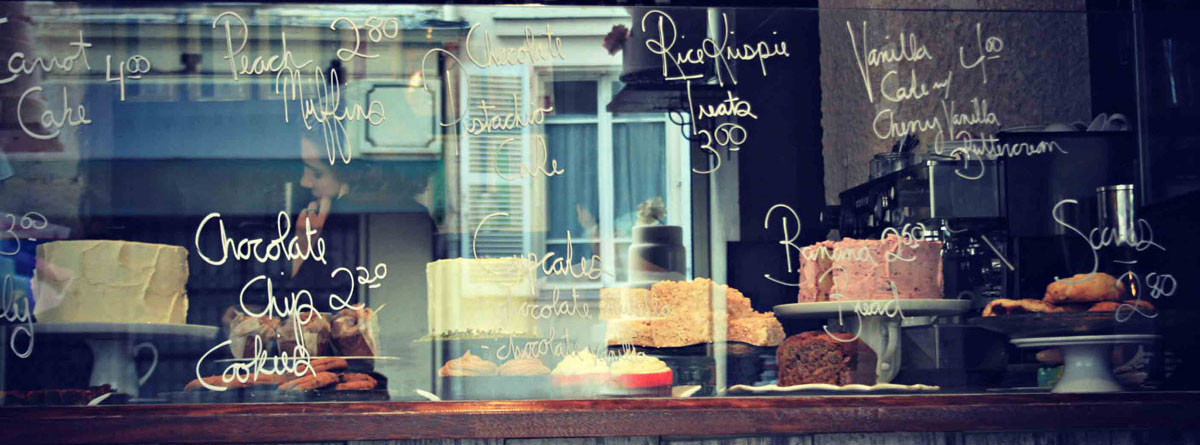 Carrot
4.00
Cake
Peach 2.80
Muffins
Chocolate
Pistachio
Cake
Rice Krispie
Treats
3.00
Vanilla 4.00
Cake w/
Cherry Vanilla
Buttercream
3.00
Chocolate
Chip 2.20
Cookies
Cupcakes
- chocolate
- chocolate vanilla
Banana 2.60
Bread
Scones
2.80